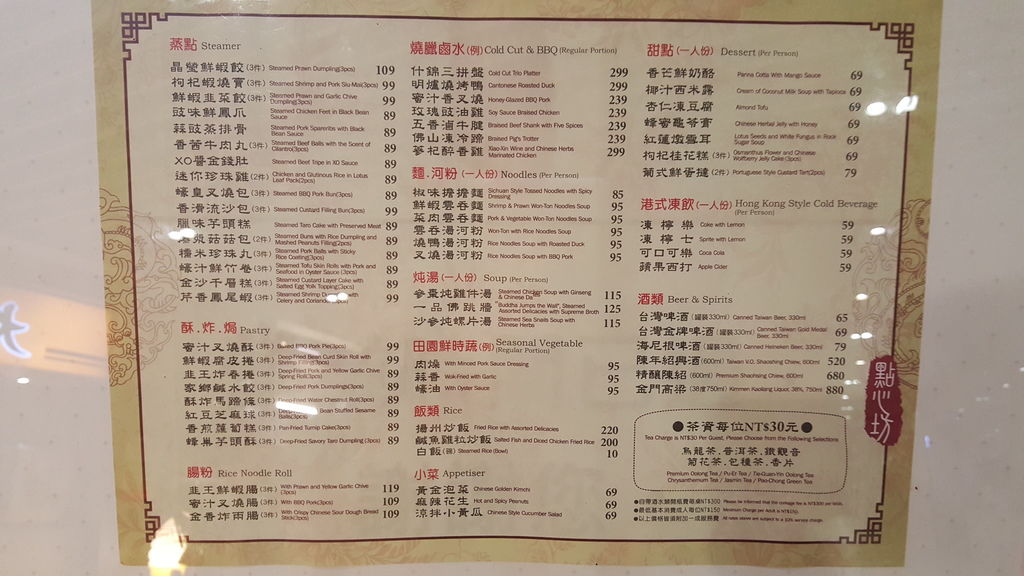 蒸點 Steamer
晶瑩鮮蝦餃 (3件) Steamed Prawn Dumpling(3pcs) 109
枸杞蝦燒賣 (3件) Steamed Shrimp and Pork Siu-Mai(3pcs) 99
鮮蝦韭菜餃 (3件) Steamed Prawn and Garlic Chive Dumpling(3pcs) 99
豉味鮮鳳爪 Steamed Chicken Feet in Black Bean Sauce 89
蒜豉蒸排骨 Steamed Pork Spareribs with Black Bean Sauce 89
香茜牛肉丸 (3件) Steamed Beef Balls with the Scent of Cilantro(3pcs) 89
XO醬金錢肚 Steamed Beef Tripe in XO Sauce 89
迷你珍珠雞 (2件) Chicken and Glutinous Rice in Lotus Leaf Pack(2pcs) 89
蠔皇叉燒包 (3件) Steamed BBQ Pork Bun(3pcs) 89
香滑流沙包 (3件) Steamed Custard Filling Bun(3pcs) 99
臘味芋頭糕 Steamed Taro Cake with Preserved Meat 89
菇菇包 (2件) Steamed Buns with Rice Dumpling and Mashed Peanuts Filling(2pcs) 89
糯米珍珠丸 (3件) Steamed Pork Balls with Sticky Rice Coating(3pcs) 89
蠔汁鮮竹卷 (3件) Steamed Tofu Skin Rolls with Pork and Seafood in Oyster Sauce (3pcs) 89
金沙千層糕 (3件) Steamed Custard Layer Cake with Salted Egg Yolk Topping(3pcs) 89
芹香鳳尾蝦 (3件) Steamed Shrimp with Celery and Coriander(3pcs) 99
酥.炸.焗 Pastry
蜜汁叉燒酥 (3件) Baked BBQ Pork Pie(3pcs) 99
鮮蝦腐皮捲 (3件) Deep-Fried Bean Curd Skin Roll with Shrimp Filling(3pcs) 99
韭王炸春捲 (3件) Deep-Fried Pork and Yellow Garlic Chive Spring Roll(3pcs) 89
家鄉鹹水餃 (3件) Deep-Fried Pork Dumplings(3pcs) 89
酥炸馬蹄條 (3件) Deep-Fried Water Chestnut Roll(3pcs) 89
紅豆芝麻球 (3件) Bean Stuffed Sesame Balls(3pcs) 89
香煎蘿蔔糕 (3件) Pan-Fried Turnip Cake(3pcs) 89
蜂巢芋頭酥 (3件) Deep-Fried Savory Taro Dumpling (3pcs) 89
腸粉 Rice Noodle Roll
韭王鮮蝦腸 (3件) With Prawn and Yellow Garlic Chive (3pcs) 119
蜜汁叉燒腸 (3件) With BBQ Pork(3pcs) 109
金香炸兩腸 (3件) With Crispy Chinese Sour Dough Bread Stick(3pcs) 109
燒臘鹵水 (例) Cold Cut & BBQ (Regular Portion)
什錦三拼盤 Cold Cut Trio Platter 299
明爐燒烤鴨 Cantonese Roasted Duck 299
蜜汁香叉燒 Honey-Glazed BBQ Pork 239
玫瑰豉油雞 Soy Sauce Braised Chicken 239
五香滷牛腱 Braised Beef Shank with Five Spices 239
佛山凍冷蹄 Braised Pig's Trotter 239
蔘杞醉香雞 Xiao-Xin Wine and Chinese Herbs Marinated Chicken 299
麵.河粉 (一人份) Noodles (Per Person)
椒味擔擔麵 Sichuan Style Tossed Noodles with Spicy Dressing 85
鮮蝦雲吞麵 Shrimp & Prawn Won-Ton Noodles Soup 95
菜肉雲吞麵 Pork & Vegetable Won-Ton Noodles Soup 95
雲吞湯河粉 Won-Ton with Rice Noodles Soup 95
燒鴨湯河粉 Rice Noodles Soup with Roasted Duck 95
叉燒湯河粉 Rice Noodles Soup with BBQ Pork 95
炖湯 (一人份) Soup (Per Person)
參棗炖雞件湯 Steamed Chicken Soup with Ginseng & Chinese Date 115
一品佛跳牆 "Buddha Jumps the Wall", Steamed Assorted Delicacies with Supreme Broth 125
沙參炖螺片湯 Steamed Sea Snails Soup with Chinese Herbs 115
田園鮮時蔬 (例) Seasonal Vegetable (Regular Portion)
肉燥 With Minced Pork Sauce Dressing 95
蒜香 Wok-Fried with Garlic 95
蠔油 With Oyster Sauce 95
飯類 Rice
揚州炒飯 Fried Rice with Assorted Delicacies 220
鹹魚雞粒炒飯 Salted Fish and Diced Chicken Fried Rice 200
白飯 (碗) Steamed Rice (Bowl) 10
小菜 Appetiser
黃金泡菜 Chinese Golden Kimchi 69
麻辣花生 Hot and Spicy Peanuts 69
涼拌小黃瓜 Chinese Style Cucumber Salad 69
甜點 (一人份) Dessert (Per Person)
香芒鮮奶酪 Panna Cotta With Mango Sauce 69
椰汁西米露 Cream of Coconut Milk Soup with Tapioca 69
杏仁凍豆腐 Almond Tofu 69
蜂蜜龜苓膏 Chinese Herbal Jelly with Honey 69
紅蓮燉雪耳 Lotus Seeds and White Fungus in Rock Sugar Soup 69
枸杞桂花糕 (3件) Osmanthus Flower and Chinese Wolfberry Jelly Cake(3pcs) 69
葡式鮮蛋撻 (2件) Portuguese Style Custard Tart(2pcs) 79
港式凍飲 (一人份) Hong Kong Style Cold Beverage (Per Person)
凍檸樂 Coke with Lemon 59
凍檸士 Sprite with Lemon 59
可口可樂 Coca Cola 59
蘋果西打 Apple Cider 59
酒類 Beer & Spirits
台灣啤酒 (罐裝330ml) Canned Taiwan Beer, 330ml 65
台灣金牌啤酒 (罐裝330ml) Canned Taiwan Gold Medal Beer, 330ml 69
海尼根啤酒 (罐裝330ml) Canned Heineken Beer, 330ml 79
陳年紹興酒 (600ml) Taiwan V.O. Shaoshing Chiew, 600ml 520
精釀陳紹 (600ml) Premium Shaoshing Chiew, 600ml 680
金門高梁 (38度750ml) Kimmen Kaoliang Liquor, 38%, 750ml 880
●茶資每位NT$30元●
Tea Charge is NT$30 Per Guest, Please Choose from the Following Selections
烏龍茶.普洱茶.鐵觀音
菊花茶.包種茶.香片
Premium Oolong Tea / Pu-Er Tea / Tie-Guan-Yin Oolong Tea
Chrysanthemum Tea / Jasmin Tea / Pao-Chong Green Tea
●自帶酒水酌開瓶費每瓶NT$300 Please be informed that the corkage fee is NT$300 per bottle.
●最低基本消費成人每位NT$150 Minimum Charge per Adult is NT$150.
●以上價格皆須附加一成服務費 All rates above are subject to a 10% service charge.
點心坊